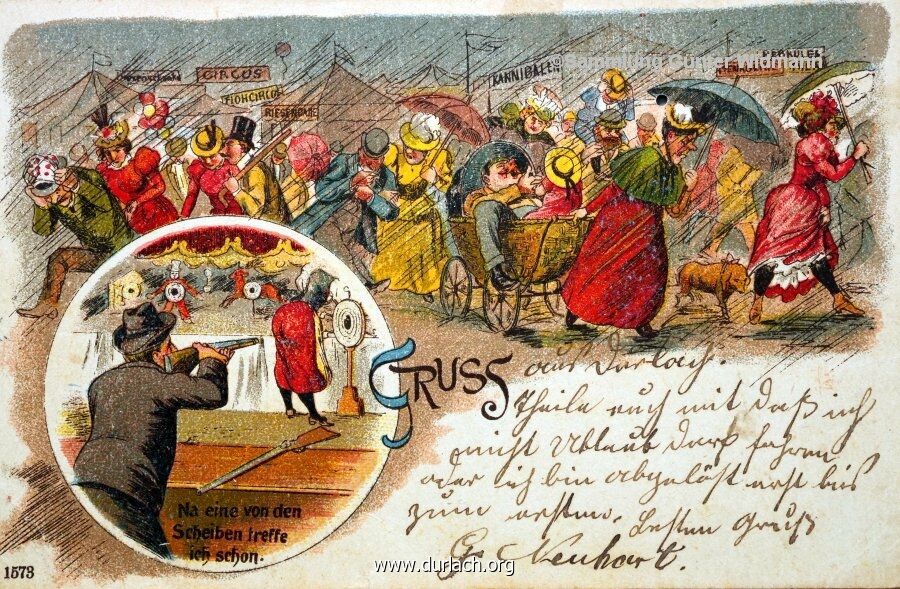 Sammlung Günter Widmann
CIRCUS
FLOHCIRCUS
RIESENDAME
KANNIBALEN
HERKULES
GRUSS aus Durlach.
Theile euch mit daß ich
nicht Uhlaub darf fahren
oder ich bin abgelöst erst bis
zum ersten. Besten Gruß
G. Neuhart.
Na eine von den
Scheiben treffe
ich schon.
1573
www.durlach.org